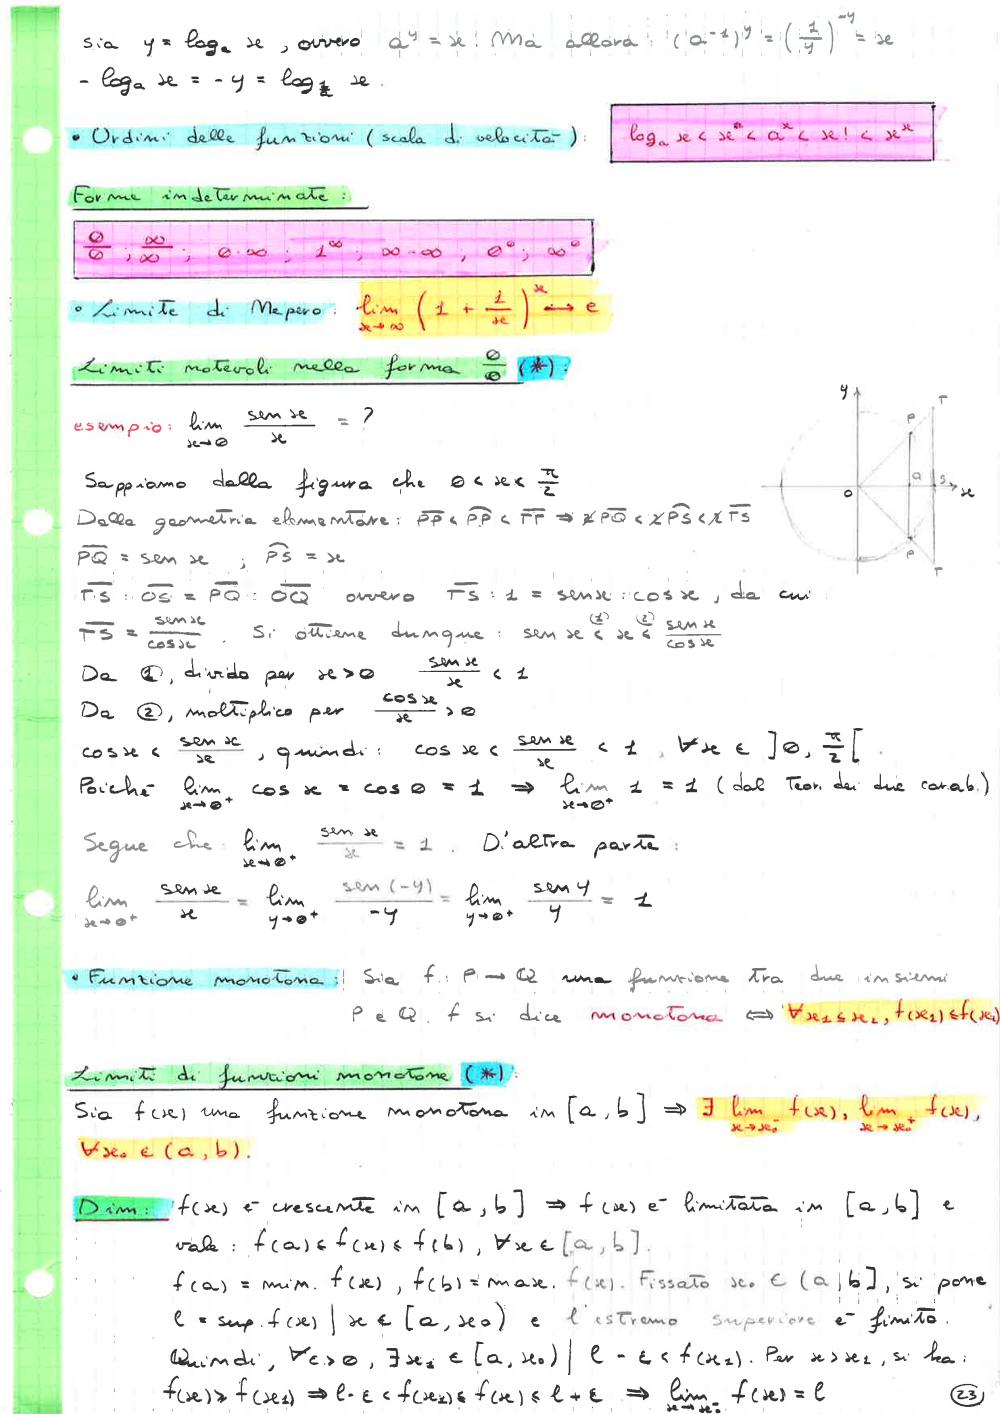 sia y = logₐ x , ovvero a^y = x! Ma allora: (a^-1)^y = (1/y)^-y = x
- logₐ x = -y = log x.
• Ordini delle funzioni (scala di velocità): logₐ x < x^a < a^x < x! < x^x
Forme indeterminate:
0/0 ; ∞/∞ ; 0·∞ ; 1^∞ ; ∞-∞ ; 0^0 ; ∞^0
• Limite di Nepero: lim x→∞ (1 + 1/x)^x → e
Limiti notevoli nella forma 0/0 (*):
esempio: lim x→0 sen x / x = ?
y T P O a S x P T
Sappiamo dalla figura che 0 < x < π/2
Dalla geometria elementare: PP < PP < TT ⇒ 2PQ < 2PS < 2TS
PQ = sen x ; PS = x
TS : OS = PQ : OQ ovvero TS : 1 = sen x : cos x , da cui
TS = sen x / cos x . Si ottiene dunque: sen x <(1) x <(2) sen x / cos x
Da ①, divido per x > 0 sen x / x < 1
Da ②, moltiplico per cos x / x > 0
cos x < sen x / x , quindi: cos x < sen x / x < 1 , ∀x ∈ ]0, π/2[ .
Poiché lim x→0⁺ cos x = cos 0 = 1 ⇒ lim x→0⁺ 1 = 1 (dal Teor. dei due carab.)
Segue che lim x→0⁺ sen x / x = 1 . D'altra parte:
lim x→0⁺ sen x / x = lim y→0⁺ sen (-y) / -y = lim y→0⁺ sen y / y = 1
• Funzione monotona: Sia f: P → Q una funzione tra due insiemi
P e Q. f si dice monotona ⇔ ∀x₁ ≤ x₂, f(x₁) ≤ f(x₂)
Limiti di funzioni monotone (*):
Sia f(x) una funzione monotona in [a,b] ⇒ ∃ lim x→x₀⁻ f(x), lim x→x₀⁺ f(x),
∀x₀ ∈ (a,b).
Dim: f(x) è crescente in [a,b] ⇒ f(x) è limitata in [a,b] e
vale: f(a) ≤ f(x) ≤ f(b) , ∀x ∈ [a,b].
f(a) = min. f(x) , f(b) = max. f(x). Fissato x₀ ∈ (a,b], si pone
l = sup. f(x) | x ∈ [a, x₀) e l'estremo superiore è finito.
Quindi, ∀ε > 0, ∃x₁ ∈ [a, x₀) | l - ε < f(x₁). Per x > x₁, si ha:
f(x) ≥ f(x₁) ⇒ l - ε < f(x₁) ≤ f(x) ≤ l + ε ⇒ lim x→x₀⁻ f(x) = l
23